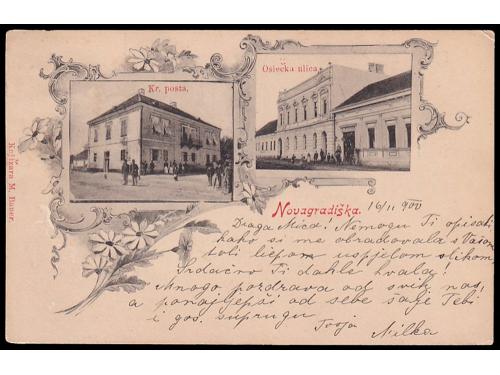 Kr. pošta.
Osiečka ulica.
Knjižara M. Bauer.
Novagradiška.
16/11 900
Draga Mica! Nemogu Ti opisati
kako si me obradovala s Vašom
toli liepom uspjelom slikom.
Srdačno Ti dakle hvala!
Mnogo pozdrava od svih nas,
a ponajljepši od sebe šalje Tebi
i gos. suprugu
Tvoja
Milka